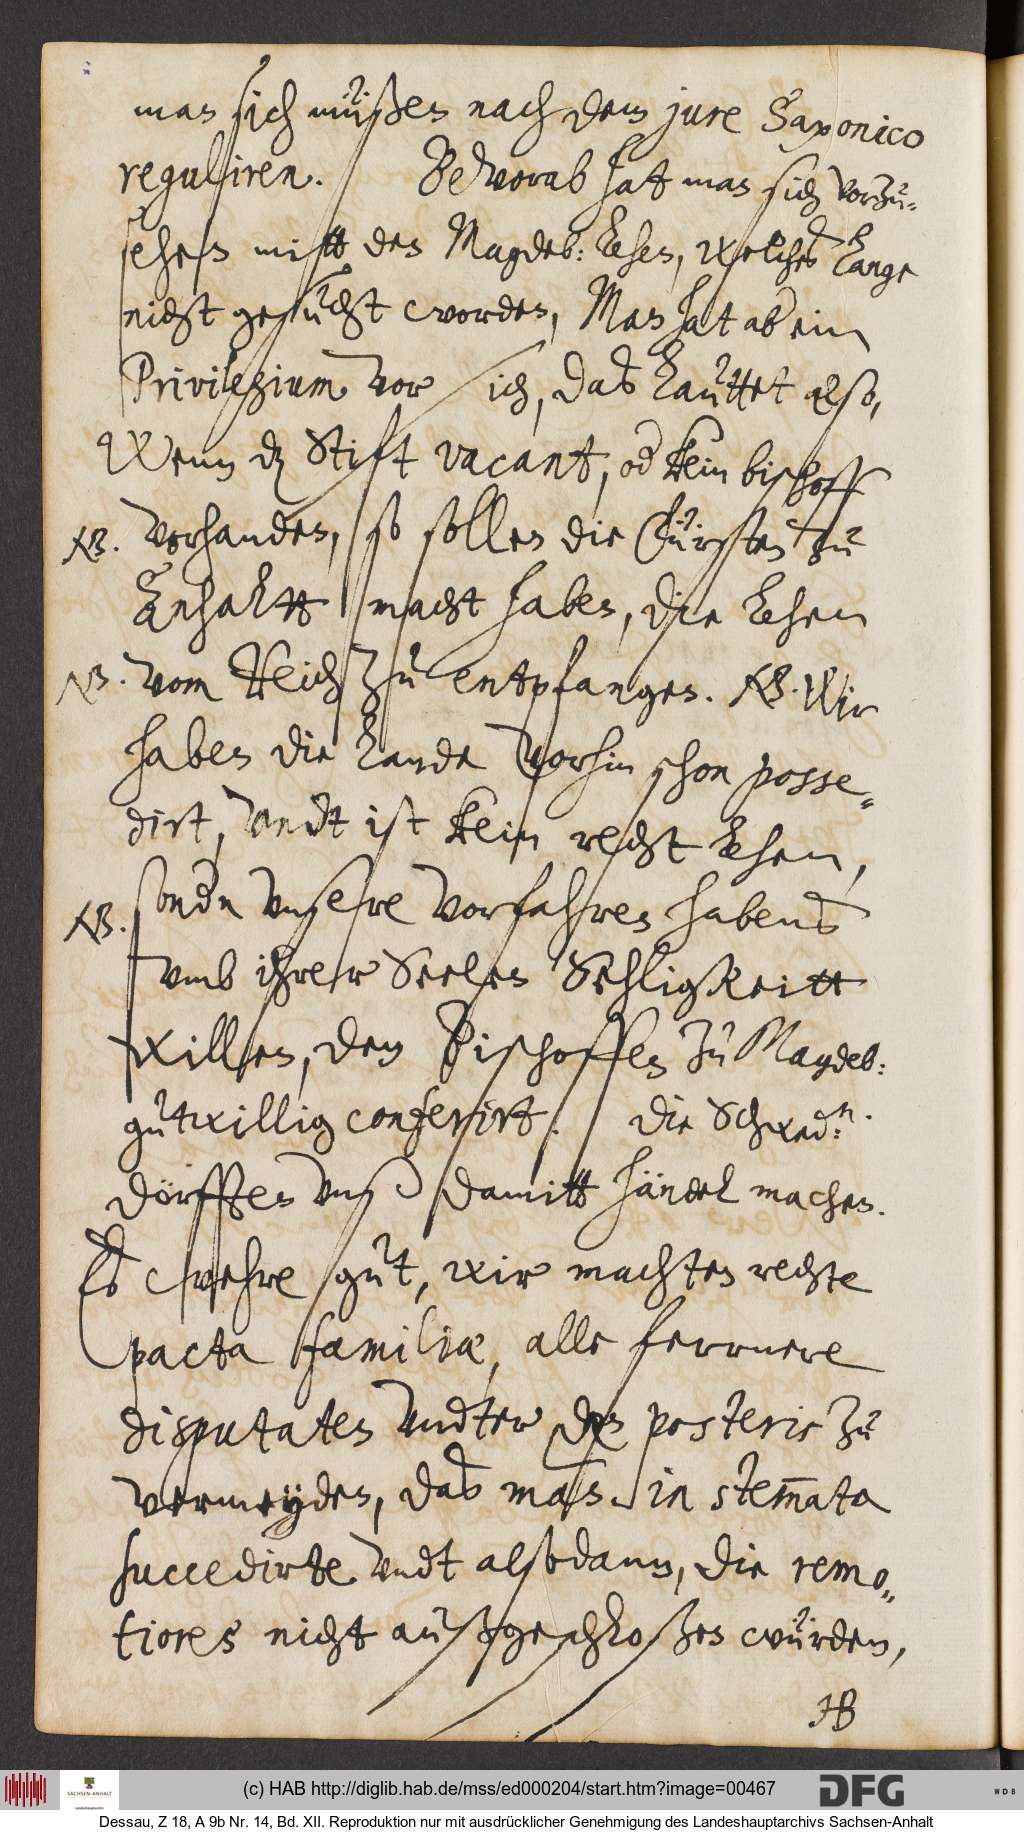 man sich müßen nach dem jure Saxonico
reguliren. Bevorab hat man sich vorzu-
sehen mitt den Magdeb: Lehen, welches Lange
nicht gesucht worden, Man hat ab ein
Privilegium vor sich, das Lauttet also,
Wenn dz Stift vacant, od kein bischoff
NB. vorhanden, so sollen die Fürsten zu
Anhaltt macht haben, die Lehen
NB. vom Reich zu entpfangen. NB. Wir
haben die Lande vorhin schon posse-
dirt, undt ist kein recht Lehen,
NB. sondn unsere Vorfahren habens
umb ihrer Seelen Sehligkeitt
willen, den Bischoffen zu Magdeb:
gutwillig conferirt. Die Schwedn:
dörffen unß damitt händel machen.
Es wehre gut, wir machten rechte
pacta familiæ, alle fernere
disputaten undter den posteris zu
vermeyden, das man in stem̄ata
succedirte undt alsdann, die remo-
tiores nicht außgeschloßen würden,
HB
(c) HAB http://diglib.hab.de/mss/ed000204/start.htm?image=00467
SACHSEN-ANHALT
Landeshauptarchiv
DFG
WDB
Dessau, Z 18, A 9b Nr. 14, Bd. XII. Reproduktion nur mit ausdrücklicher Genehmigung des Landeshauptarchivs Sachsen-Anhalt